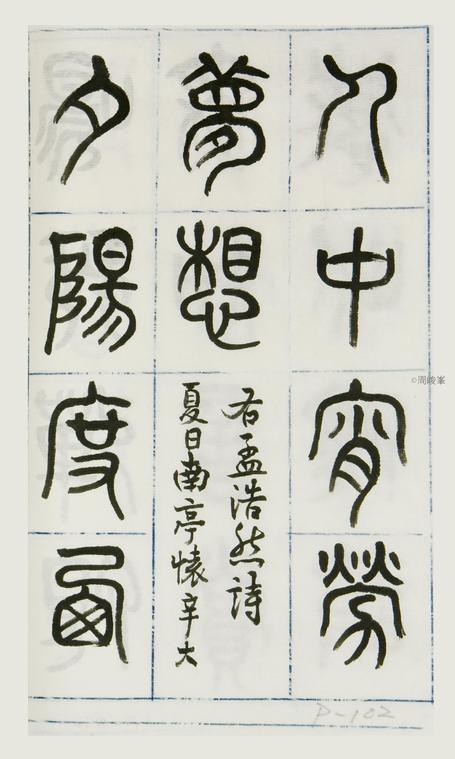 人中宵勞
夢想
右孟浩然詩
夏日南亭懷辛大
夕陽度西
©周峻峯
P-102